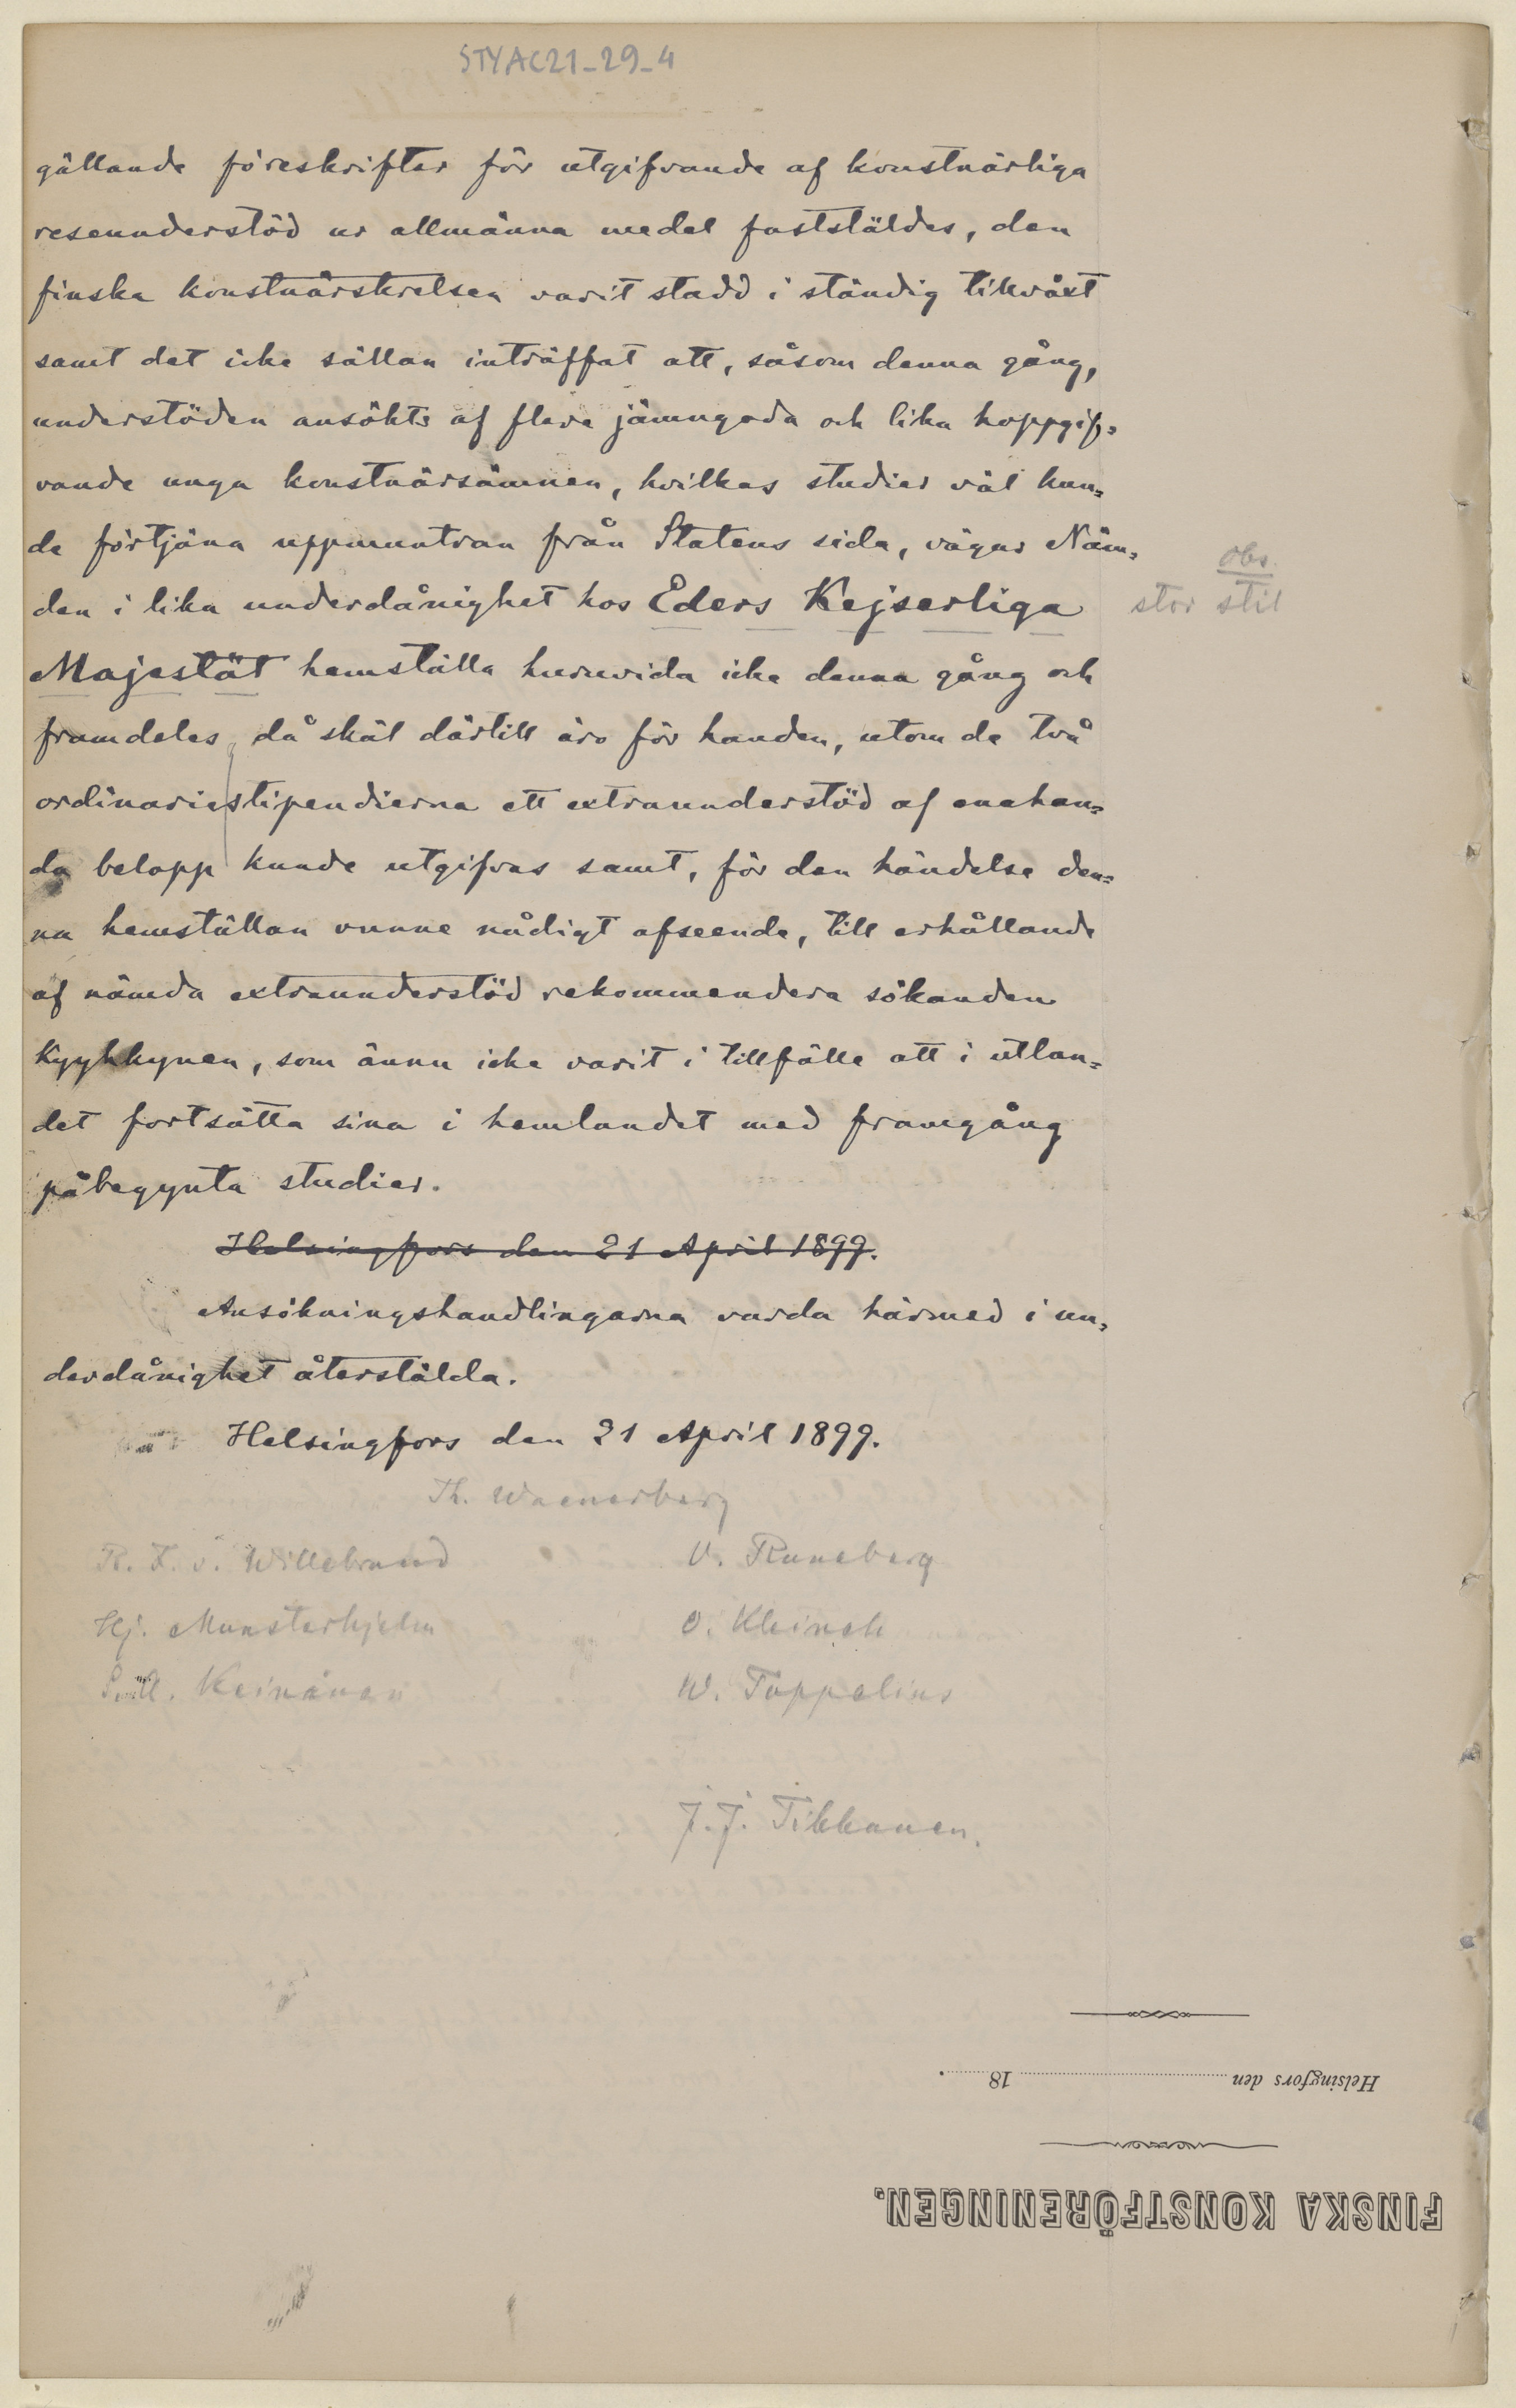 STYAC21_29_4
gällande föreskrifter för utgifvande af konstnärliga
reseunderstöd ur allmänna medel faststäldes, den
finska konstnärskretsen varit stadd i ständig tillväxt
samt det icke sällan inträffat att, såsom denna gång,
understöden ansökts af flera jämngoda och lika hoppgif=
vande unga konstnärsämnen, hvilkas studier väl kun=
de förtjäna uppmuntran från Statens sida, vågar Näm=
obs.
den i lika underdånighet hos Eders Kejserliga stor stil
Majestät hemställa huruvida icke denna gång och
framdeles, då skäl därtill äro för handen, utom de två
ordinariestipendierna ett extraunderstöd af enahan=
da belopp kunde utgifvas samt, för den händelse den=
na hemställan vunne nådigt afseende, till erhållande
af nämda extraunderstöd rekommendera sökanden
Kyyhkynen, som ännu icke varit i tillfälle att i utlan=
det fortsätta sina i hemlandet med framgång
påbegynta studier.
Helsingfors den 21 April 1899.
Ansökningshandlingarna varda härmed i un=
derdånighet återstälda.
Helsingfors den 21 April 1899.
Th. Waenerberg
R. F. v. Willebrand V. Runeberg
Hj. Munsterhjelm O. Kleineh
Keinänen W. Toppelius
J. J. Tikkanen.
Helsingfors den 18 .
FINSKA KONSTFÖRENINGEN.